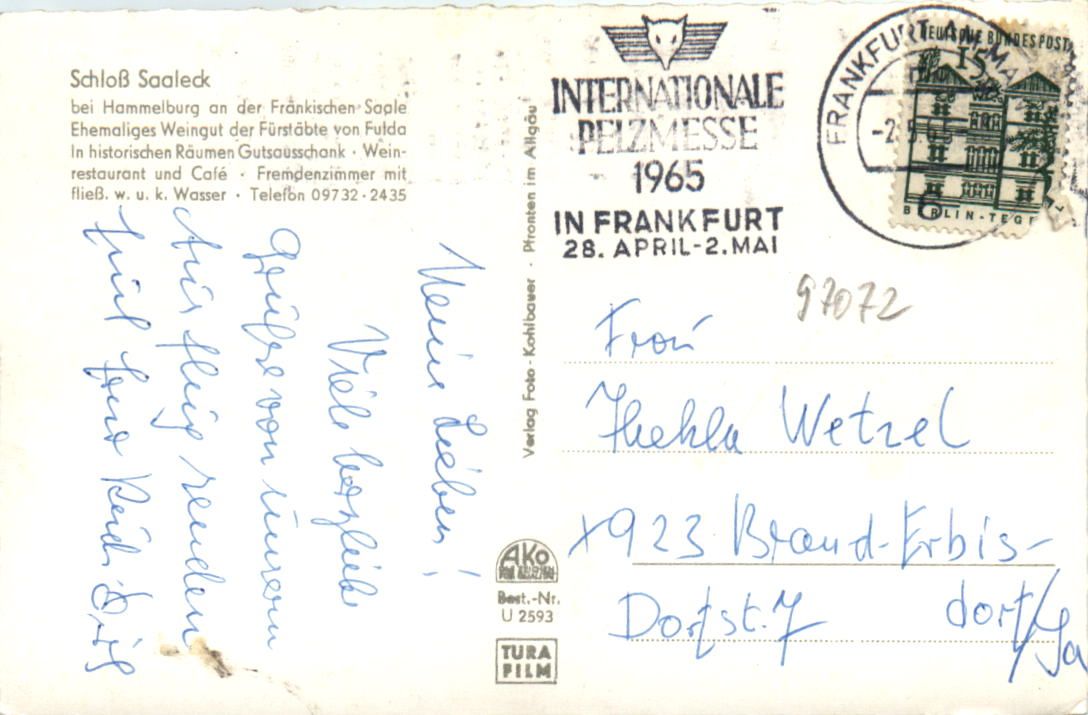 Schloß Saaleck
bei Hammelburg an der Fränkischen Saale
Ehemaliges Weingut der Fürstäbte von Fulda
In historischen Räumen Gutsausschank · Wein-
restaurant und Café · Fremdenzimmer mit
fließ. w. u. k. Wasser · Telefon 09732-2435
Meine Lieben!
Viele herzliche
Grüße von unserem
Ausflug senden
Verlag Foto-Kohlbauer · Pfronten im Allgäu
AKO
Best.-Nr.
U 2593
TURA
FILM
INTERNATIONALE
PELZMESSE
1965
IN FRANKFURT
28. APRIL-2. MAI
FRANKFURT AM MAIN
6
DEUTSCHE BUNDESPOST
15
BERLIN-TEGEL
97072
Frau
Thekla Wetzel
x923 Brand-Erbis-
dorf/Sa
Dorfst. 7